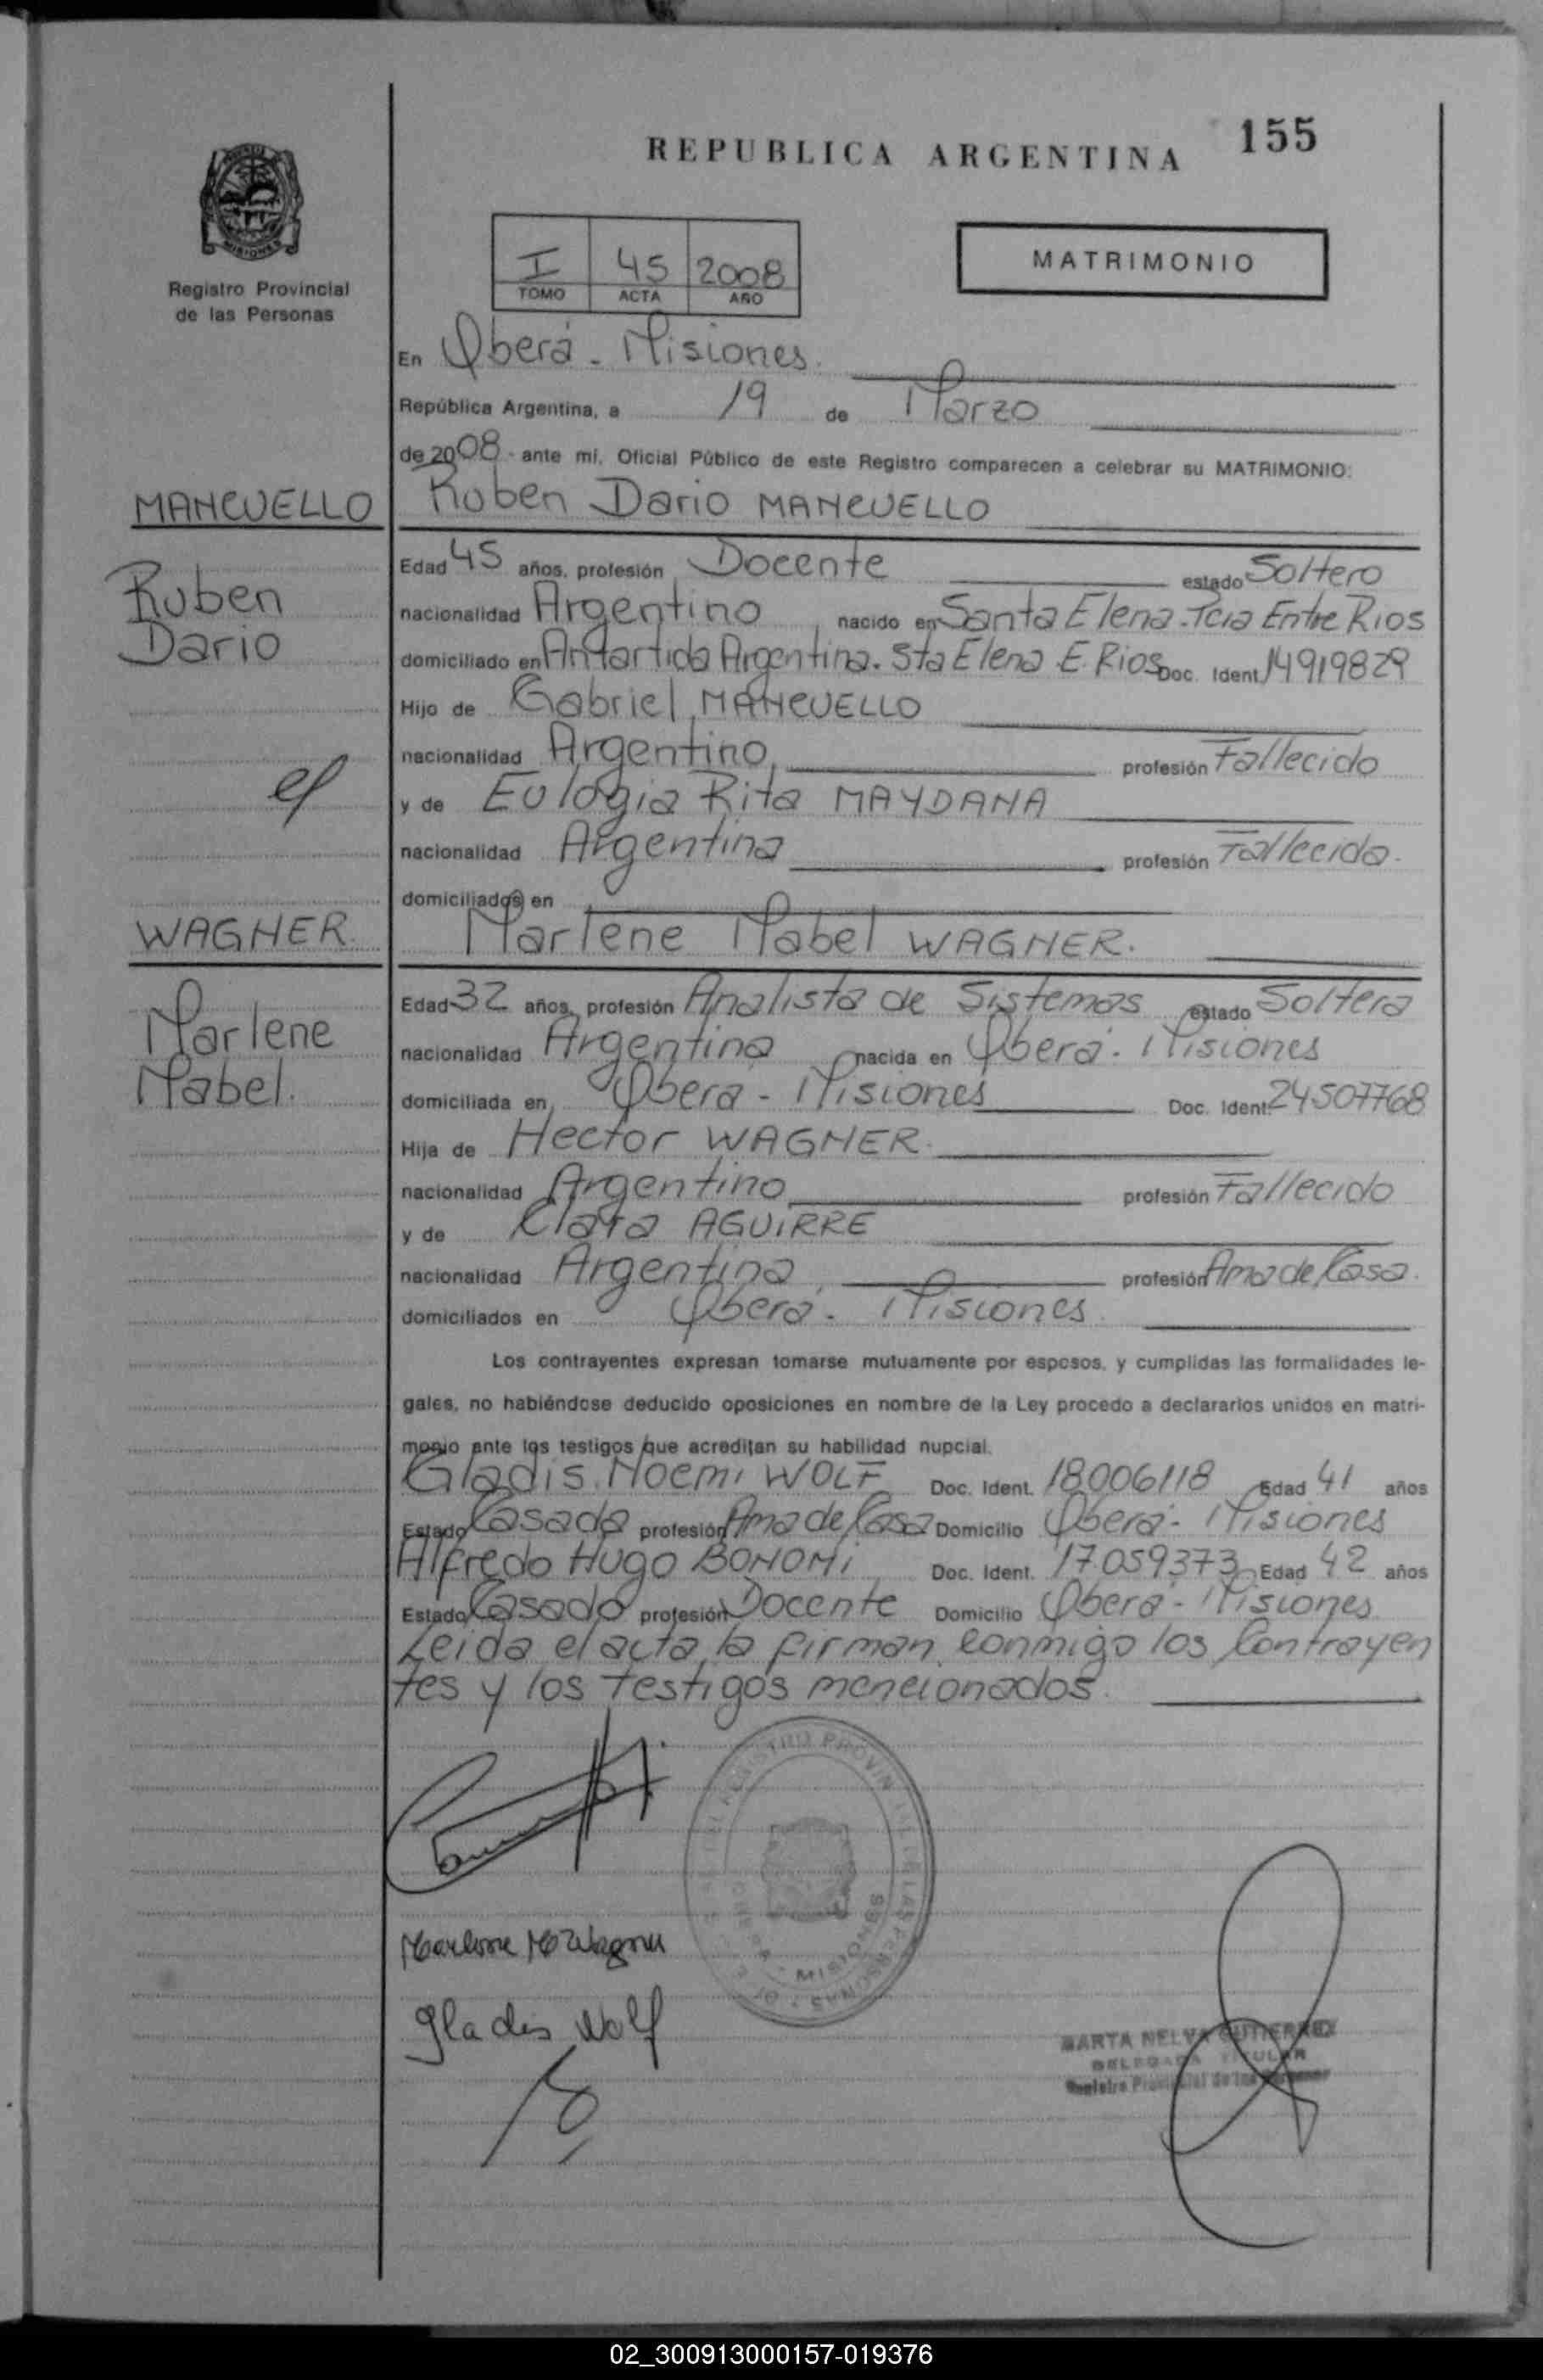 REPUBLICA ARGENTINA 155
MISIONES
Registro Provincial
de las Personas
I 45 2008
TOMO ACTA AÑO
MATRIMONIO
En Oberá - Misiones.
República Argentina, a 19 de Marzo
de 2008 - ante mí, Oficial Público de este Registro comparecen a celebrar su MATRIMONIO:
MANCUELLO
Ruben Dario MANCUELLO
Ruben
Dario
Edad 45 años, profesión Docente estado Soltero
nacionalidad Argentino nacido en Santa Elena - Pcia Entre Rios
domiciliado en Antartida Argentina. Sta Elena E. Rios Doc. Ident. 14919829
Hijo de Gabriel MANCUELLO
nacionalidad Argentino, profesión Fallecido
y de Eulogia Rita MAYDANA
nacionalidad Argentina profesión Fallecida.
domiciliados en
WAGNER.
Marlene Mabel WAGNER.
Marlene
Mabel.
Edad 32 años, profesión Analista de Sistemas estado Soltera
nacionalidad Argentina nacida en Oberá - Misiones
domiciliada en Oberá - Misiones Doc. Ident. 24507768
Hija de Hector WAGNER.
nacionalidad Argentino profesión Fallecido
y de Clara AGUIRRE
nacionalidad Argentina, profesión Ama de Casa.
domiciliados en Oberá - Misiones
Los contrayentes expresan tomarse mutuamente por esposos, y cumplidas las formalidades le-
gales, no habiéndose deducido oposiciones en nombre de la Ley procedo a declararlos unidos en matri-
monio ante los testigos que acreditan su habilidad nupcial.
Gladis Noemi WOLF Doc. Ident. 18006118 Edad 41 años
Estado Casada profesión Ama de Casa Domicilio Oberá - Misiones
Alfredo Hugo BONOMi Doc. Ident. 17.059373 Edad 42 años
Estado Casado profesión Docente Domicilio Oberá - Misiones
Leida el acta, la firman conmigo los Contrayen
tes y los testigos mencionados.
Marlene M Wagner
Gladis Wolf
MARTA NELVA GUTIERREZ
DELEGADA TITULAR
Registro Provincial de las Personas
02_300913000157-019376